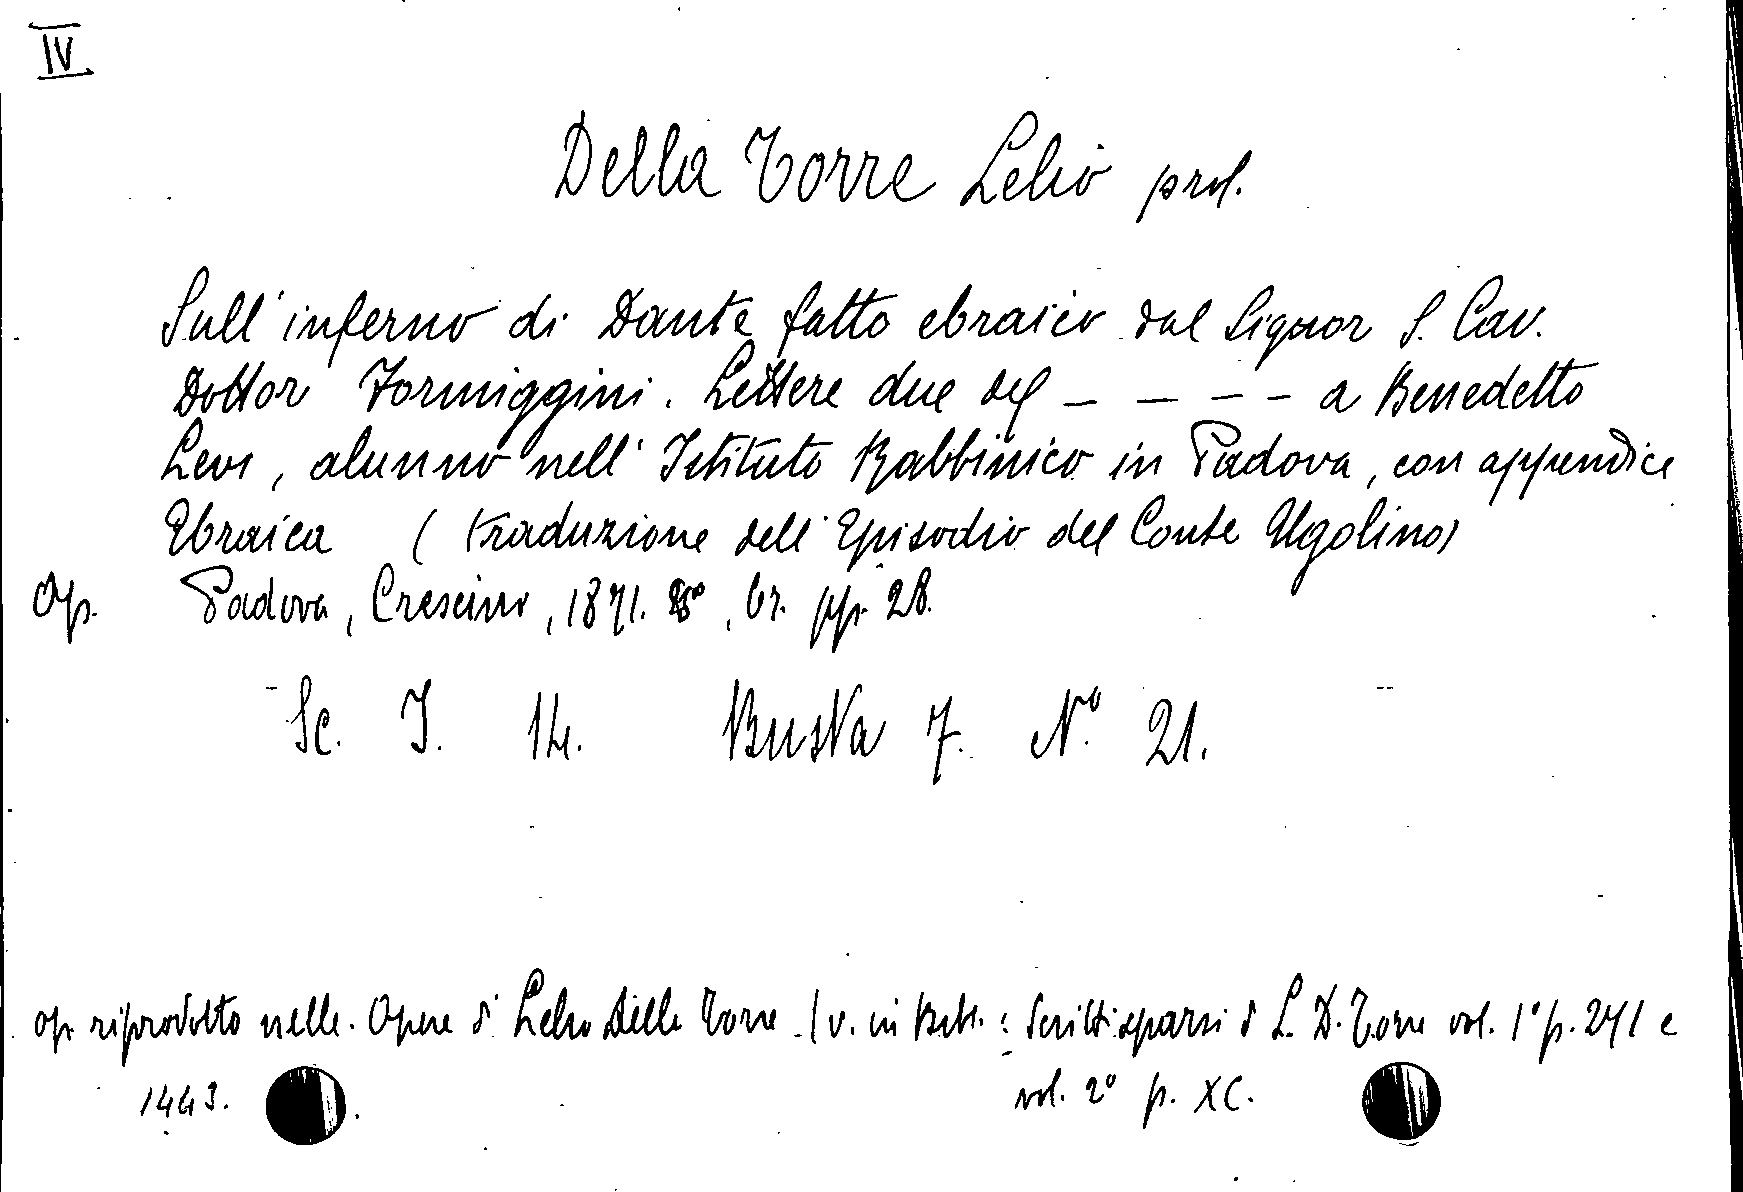 IV
Della Torre Lelio prof.
Sull'inferno di Dante fatto ebraico dal Signor S. Cav.
Dottor Formiggini. Lettere due del _ _ _ _ a Benedetto
Levi, alunno nell' Istituto Rabbinico in Padova, con appendice
Ebraica ( traduzione dell'Episodio del Conte Ugolino)
Op. Padova, Crescini, 1871. 8°, br. pp. 28.
Sc. I. 14. Busta 7. N.° 21.
op. riprodotto nelle Opere di Lelio Della Torre (v. in Bibl. : Scritti sparsi di L. D. Torre vol. 1° p. 271 e
1443. vol. 2° p. XC.